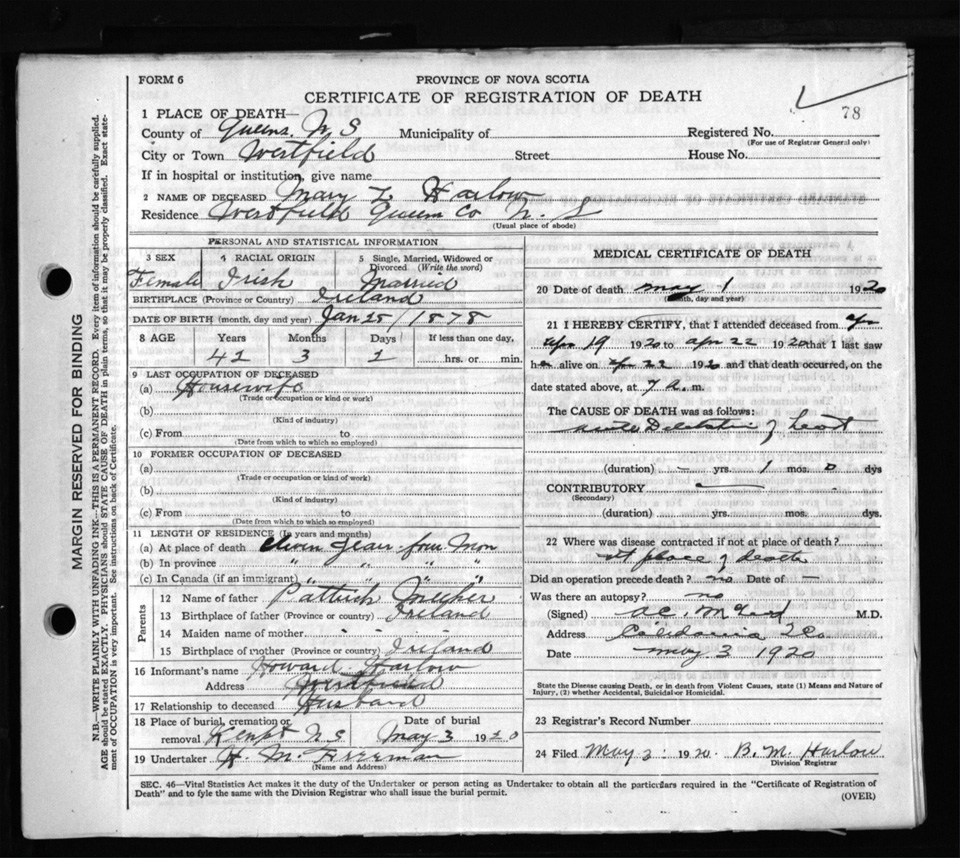 FORM 6
PROVINCE OF NOVA SCOTIA
CERTIFICATE OF REGISTRATION OF DEATH
78
1 PLACE OF DEATH—
County of Queens, N S Municipality of Registered No.
(For use of Registrar General only)
City or Town Westfield Street House No.
If in hospital or institution, give name
2 NAME OF DECEASED Mary L Harlow
Residence Westfield Queens Co N. S
(Usual place of abode)
MARGIN RESERVED FOR BINDING
N.B.—WRITE PLAINLY WITH UNFADING INK—THIS IS A PERMANENT RECORD. Every item of information should be carefully supplied.
AGE should be stated EXACTLY. PHYSICIANS should STATE CAUSE OF DEATH in plain terms, so that it may be properly classified. Exact state-
ment of OCCUPATION is very important. See instructions on back of Certificate.
PERSONAL AND STATISTICAL INFORMATION
3 SEX 4 RACIAL ORIGIN 5 Single, Married, Widowed or
Divorced (Write the word)
Female Irish Married
BIRTHPLACE (Province or Country) Ireland
DATE OF BIRTH (month, day and year) Jan 28 / 1878
8 AGE Years Months Days If less than one day,
42 3 2 hrs. or min.
9 LAST OCCUPATION OF DECEASED
(a) Housewife
(Trade or occupation or kind or work)
(b)
(Kind of industry)
(c) From to
(Date from which to which so employed)
10 FORMER OCCUPATION OF DECEASED
(a)
(Trade or occupation or kind of work)
(b)
(Kind of industry)
(c) From to
(Date from which to which so employed)
11 LENGTH OF RESIDENCE (In years and months)
(a) At place of death eleven years four Mon
(b) In province " " " "
(c) In Canada (if an immigrant) " " " "
Parents
12 Name of father Patrick
13 Birthplace of father (Province or country) Ireland
14 Maiden name of mother - - -
15 Birthplace of mother (Province or country) Ireland
16 Informant's name Howard Harlow
Address Westfield
17 Relationship to deceased Husband
18 Place of burial, cremation or Date of burial
removal Kempt N S May 3 1920
19 Undertaker H. M. Freeman
(Name and Address)
MEDICAL CERTIFICATE OF DEATH
20 Date of death May 1 1920
(month, day and year)
21 I HEREBY CERTIFY, that I attended deceased from apr
apr 19 1920 to apr 22 1920 that I last saw
h alive on apr 22 1920 and that death occurred, on the
date stated above, at 7 a. m.
The CAUSE OF DEATH was as follows:
acute Dilatation of heart
(duration) – yrs. 1 mos. 0 dys
CONTRIBUTORY —
(Secondary)
(duration) yrs. mos. dys.
22 Where was disease contracted if not at place of death?
at place of death
Did an operation precede death? no Date of —
Was there an autopsy? no
(Signed) M.D.
Address Caledonia
Date May 3 1920
State the Disease causing Death, or in death from Violent Causes, state (1) Means and Nature of
Injury, (2) whether Accidental, Suicidal or Homicidal.
23 Registrar's Record Number
24 Filed May 3 1920. B. M. Harlow
Division Registrar
SEC. 46—Vital Statistics Act makes it the duty of the Undertaker or person acting as Undertaker to obtain all the particulars required in the "Certificate of Registration of
Death" and to fyle the same with the Division Registrar who shall issue the burial permit.
(OVER)